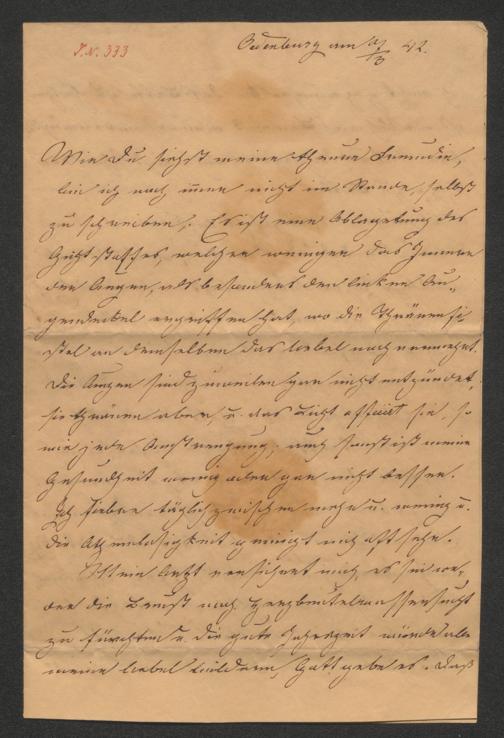 I.N. 333
Oedenburg am 17/3 42.
Wie Du siehst meine theure Freundin,
bin ich noch immer nicht im Stande, selbst
zu schreiben. Es ist eine Ablagerung des
Gichtstoffes, welcher weniger das Innere
der Augen, als besonders den linken Au-
gendeckel ergriffen hat, wo die Thränenfi-
stel an demselben das Uebel noch vermehrt.
Die Augen sind zuweilen gar nicht entzündet,
sie thränen aber, u. das Licht afficirt sie, so
wie jede Anstrengung; auch sonst ist meine
Gesundheit wenig oder gar nicht besser.
Ich fiebere täglich zwischen mehr u. wenig u.
die Athemlosigkeit peinigt mich oft sehr.
Mein Arzt versichert mich, es sei we-
der die Brust noch Herzbeutelwassersucht
zu fürchten u. die gute Jahreszeit würde alle
meine Uebel lindern, Gott gebe es. Daß